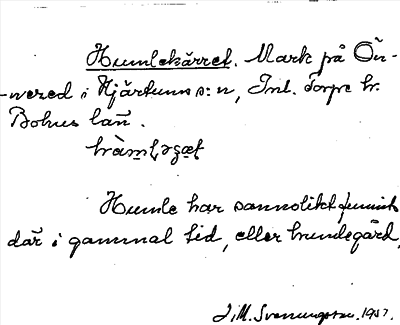 Humlekärret. Mark på Ön-
-nered i Hjärtums s:n, Inl. Torpe hr.
Bohus län.
Humle har sannolikt funnits
där i gammal tid, eller humlegård.
J.M. Svenungsson. 1937.